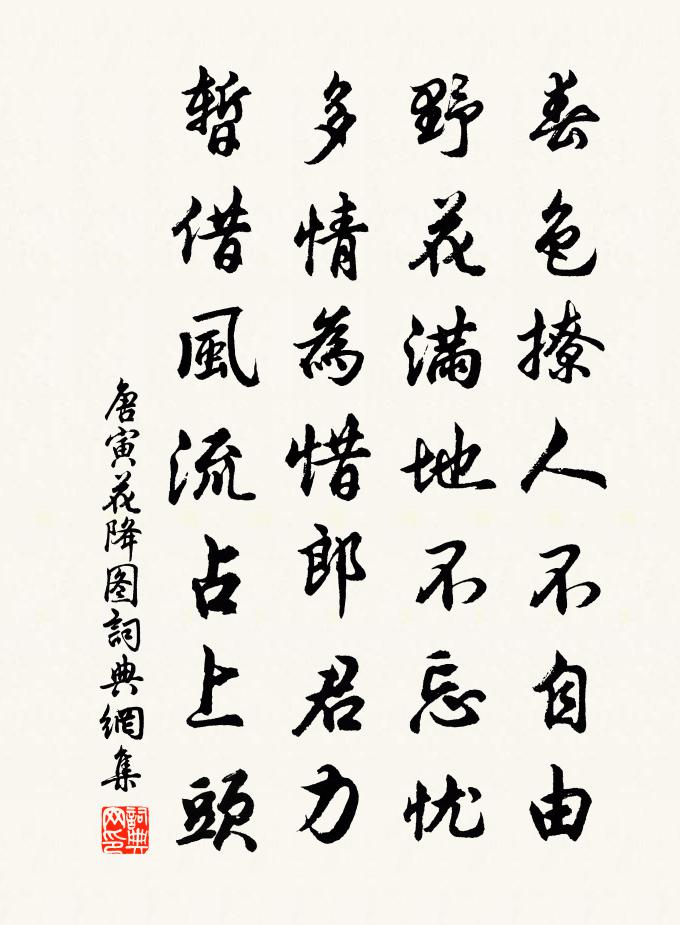 春色撩人不自由
野花滿地不忘忧
多情為惜郎君力
暫借風流占上頭
唐寅花降图詞典網集
詞典网印